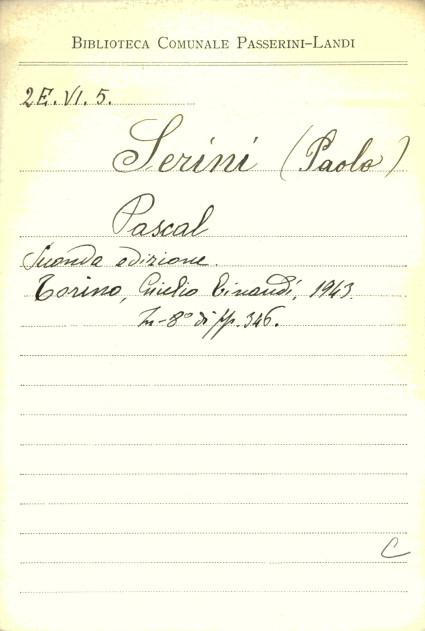 BIBLIOTECA COMUNALE PASSERINI–LANDI
2E. VI. 5.
Serini (Paolo)
Pascal
Seconda edizione.
Torino, Giulio Einaudi, 1943.
In-8º di pp. 346.
C